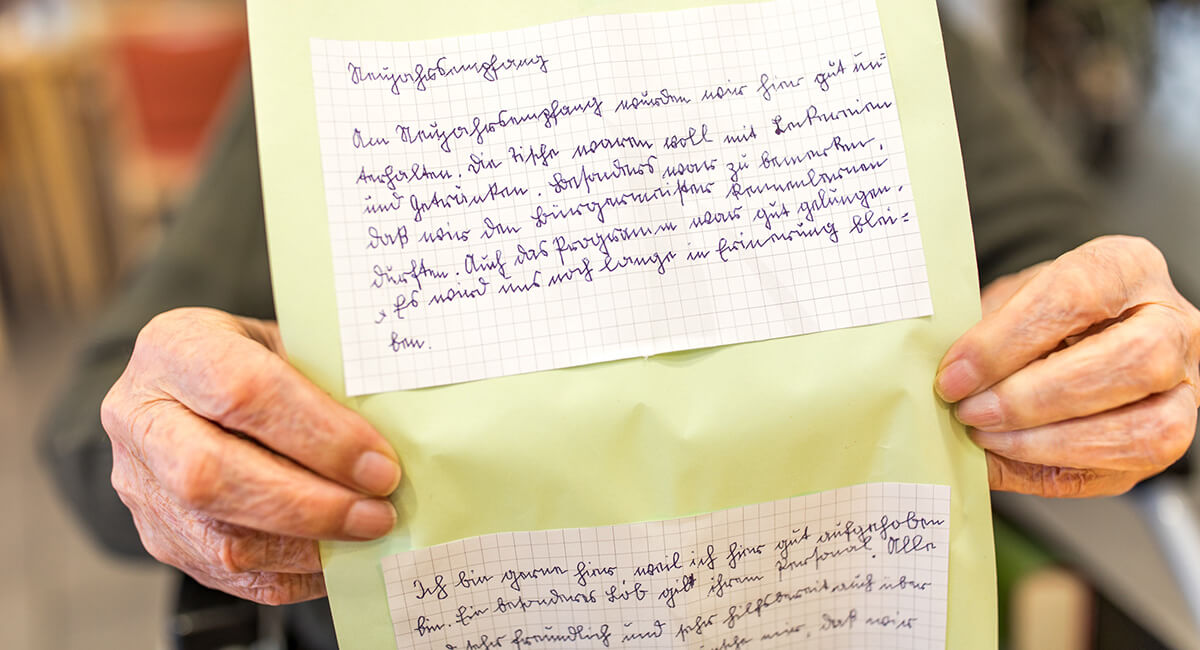 Neujahrsempfang
Am Neujahrsempfang wurden wir hier gut un-
terhalten. Die Tische waren voll mit Leckereien
und Getränken. Besonders war zu bemerken,
daß wir den Bürgermeister kennenlernen
durften. Auch das Programm war gut gelungen.
Es wird uns noch lange in Erinerung blei=
ben.
Ich bin gerne hier weil ich hier gut aufgehoben
bin. Ein besonderes Lob gilt ihrem Personal. Alle
sehr freundlich und sehr hilfsbereit auch über
mir, daß wir